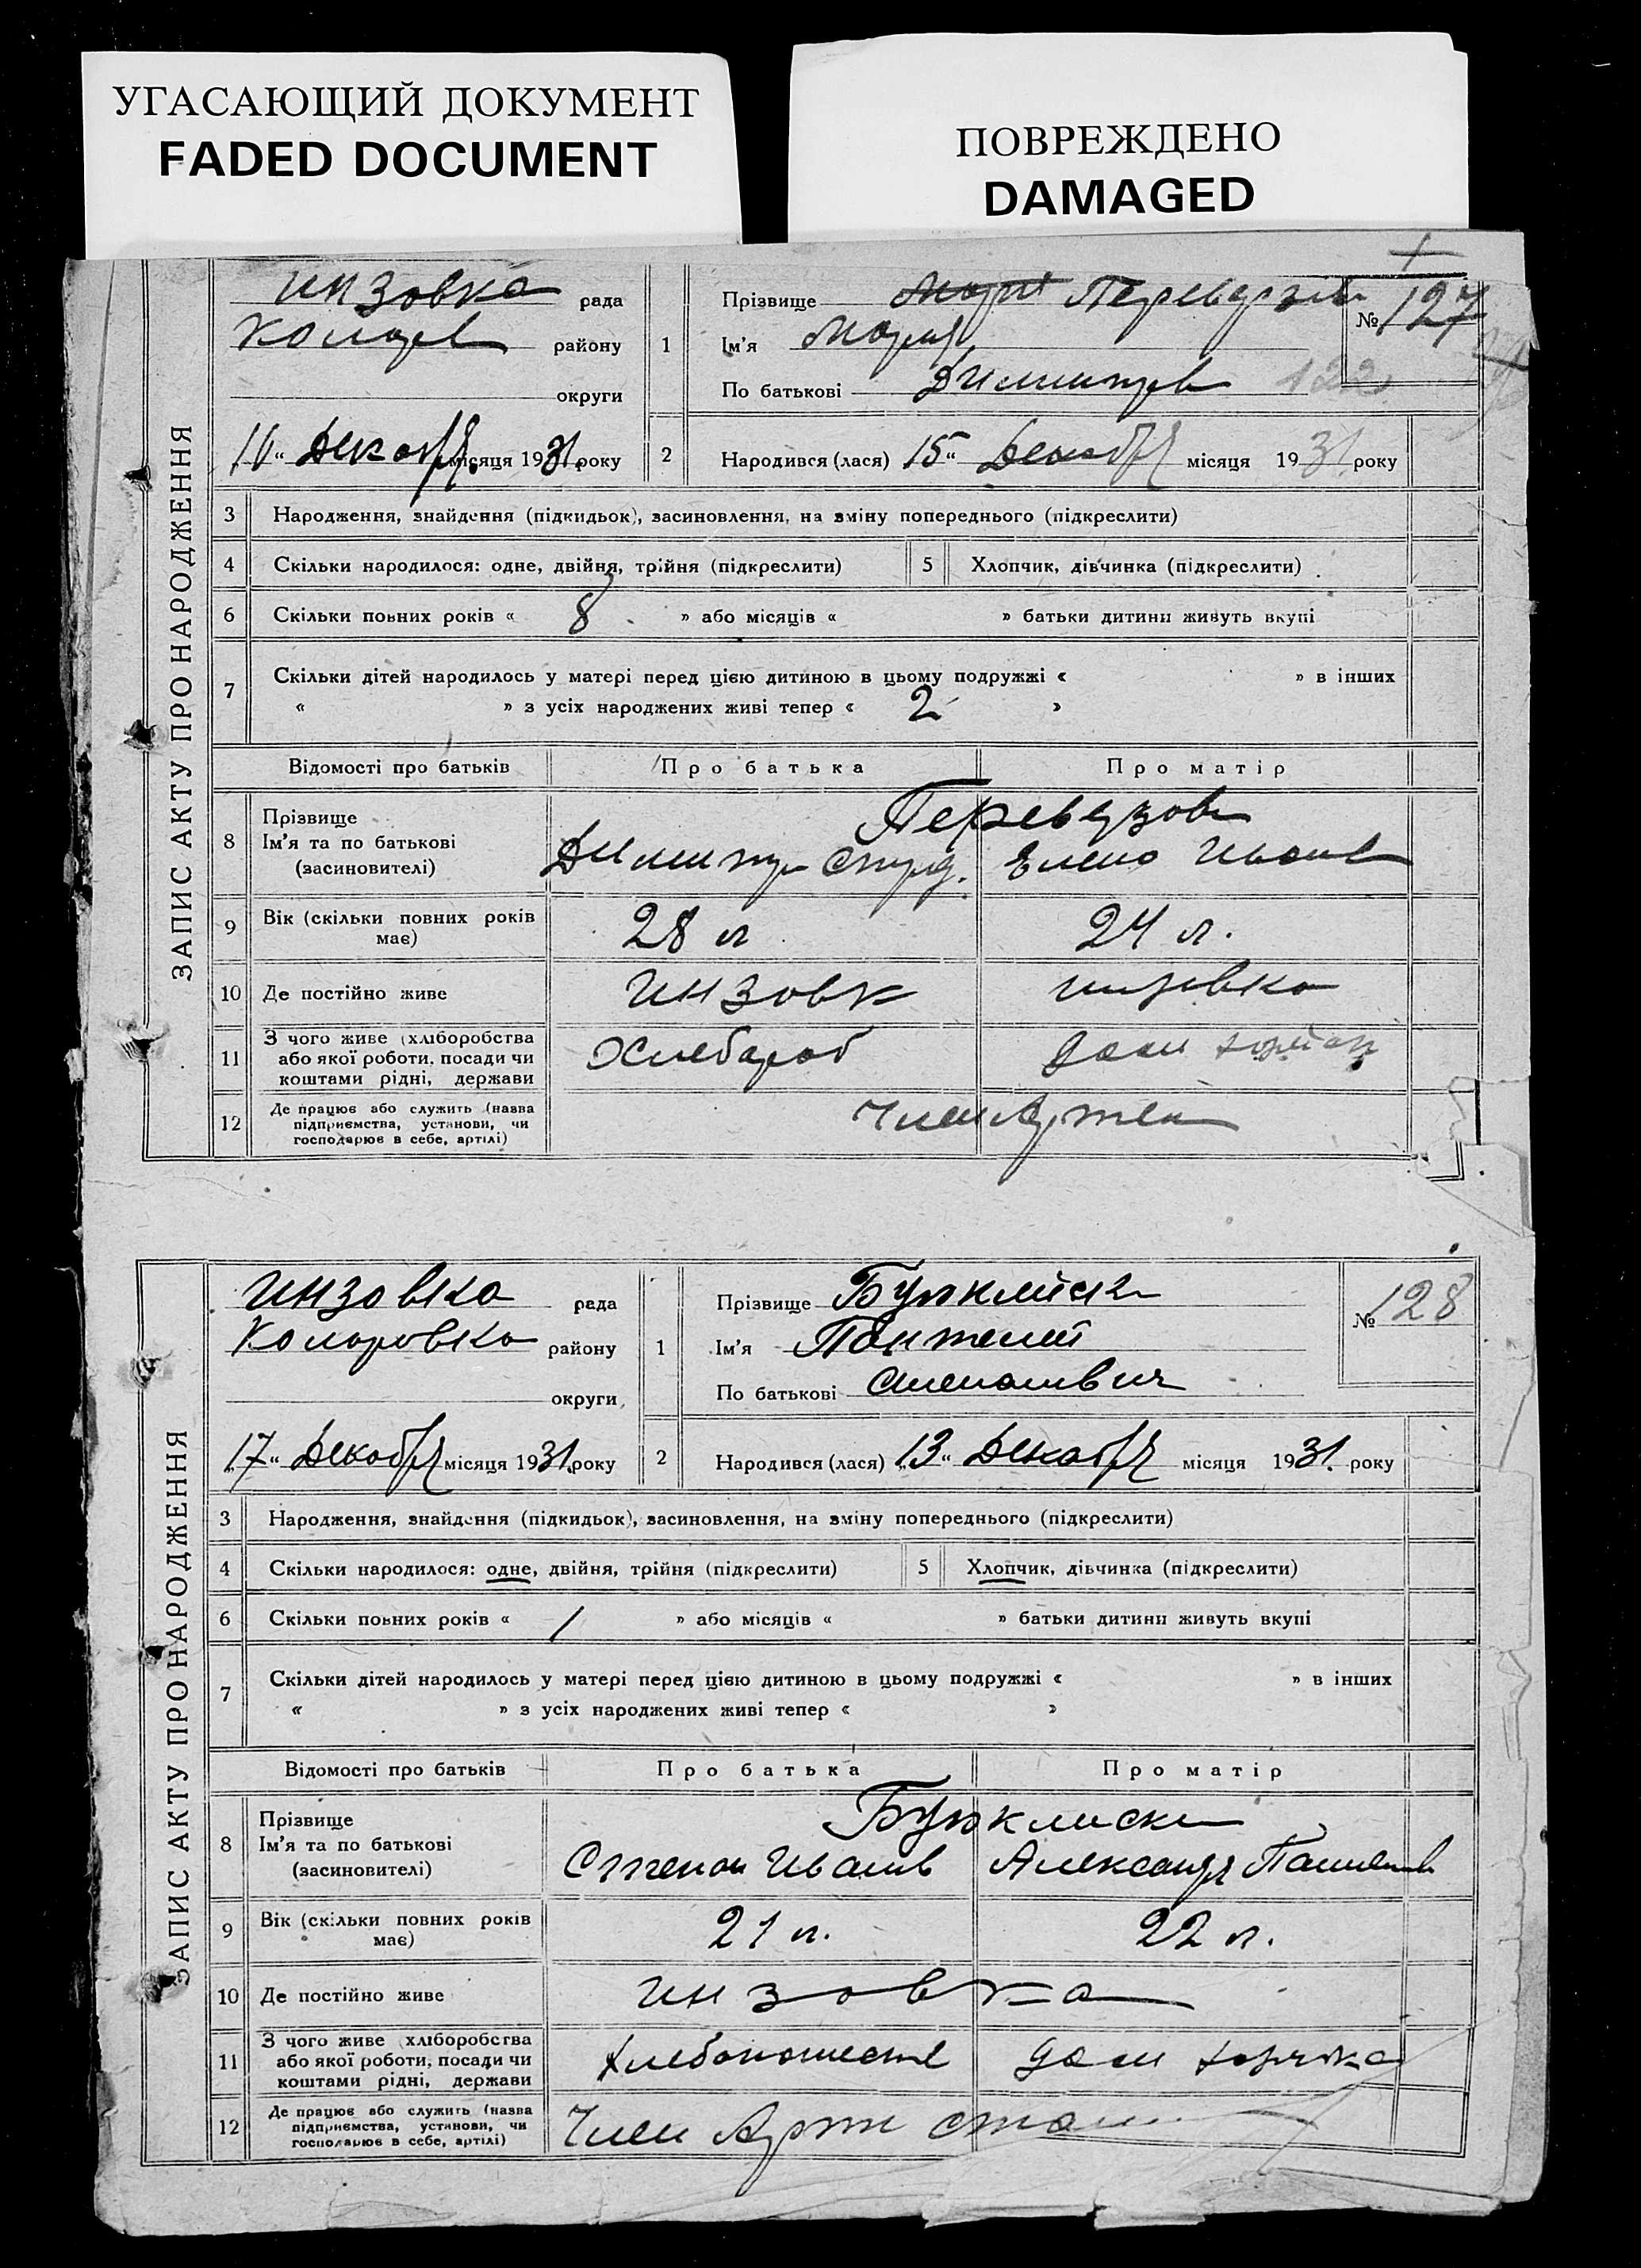 УГАСАЮЩИЙ ДОКУМЕНТ
FADED DOCUMENT
ПОВРЕЖДЕНО
DAMAGED
ЗАПИС АКТУ ПРО НАРОДЖЕННЯ
Инзовка рада
району
округи
1
Прізвище
№ 127
Ім'я Мария
По батькові 122
16 " Декабря місяця 1931. року
2
Народився (лася) 15 " Декабря місяця 1931 року
3 Народження, знайдення (підкидьок), засиновлення, на зміну попереднього (підкреслити)
4 Скільки народилося: одне, двійня, трійня (підкреслити)
5 Хлопчик, дівчинка (підкреслити)
6 Скільки повних років « 8 » або місяців « » батьки дитини живуть вкупі
7 Скільки дітей народилось у матері перед цією дитиною в цьому подружжі « » в інших
« » з усіх народжених живі тепер « 2 »
Відомості про батьків Про батька Про матір
8 Прізвище
Ім'я та по батькові
(засиновителі)
Перевузов
Елена Иванов
9 Вік (скільки повних років має) 28 л 24 л.
10 Де постійно живе Инзовк Инзовка
11 З чого живе (хліборобства або якої роботи, посади чи коштами рідні, держави Хлебороб
12 Де працює або служить (назва підприємства, установи, чи господарює в себе, артілі) Член Артел
ЗАПИС АКТУ ПРО НАРОДЖЕННЯ
Инзовка рада
Коларовка району
округи
1
Прізвище
№ 128
Ім'я Пантелей
По батькові
17 " Декабря місяця 1931. року
2
Народився (лася) 13 " Декабря місяця 1931. року
3 Народження, знайдення (підкидьок), засиновлення, на зміну попереднього (підкреслити)
4 Скільки народилося: одне, двійня, трійня (підкреслити)
5 Хлопчик, дівчинка (підкреслити)
6 Скільки повних років « 1 » або місяців « » батьки дитини живуть вкупі
7 Скільки дітей народилось у матері перед цією дитиною в цьому подружжі « » в інших
« » з усіх народжених живі тепер « »
Відомості про батьків Про батька Про матір
8 Прізвище
Ім'я та по батькові
(засиновителі)
Степан Иванов Александра
9 Вік (скільки повних років має) 21 л. 22 л.
10 Де постійно живе Инзовка
11 З чого живе (хліборобства або якої роботи, посади чи коштами рідні, держави
12 Де працює або служить (назва підприємства, установи, чи господарює в себе, артілі) Член Арти